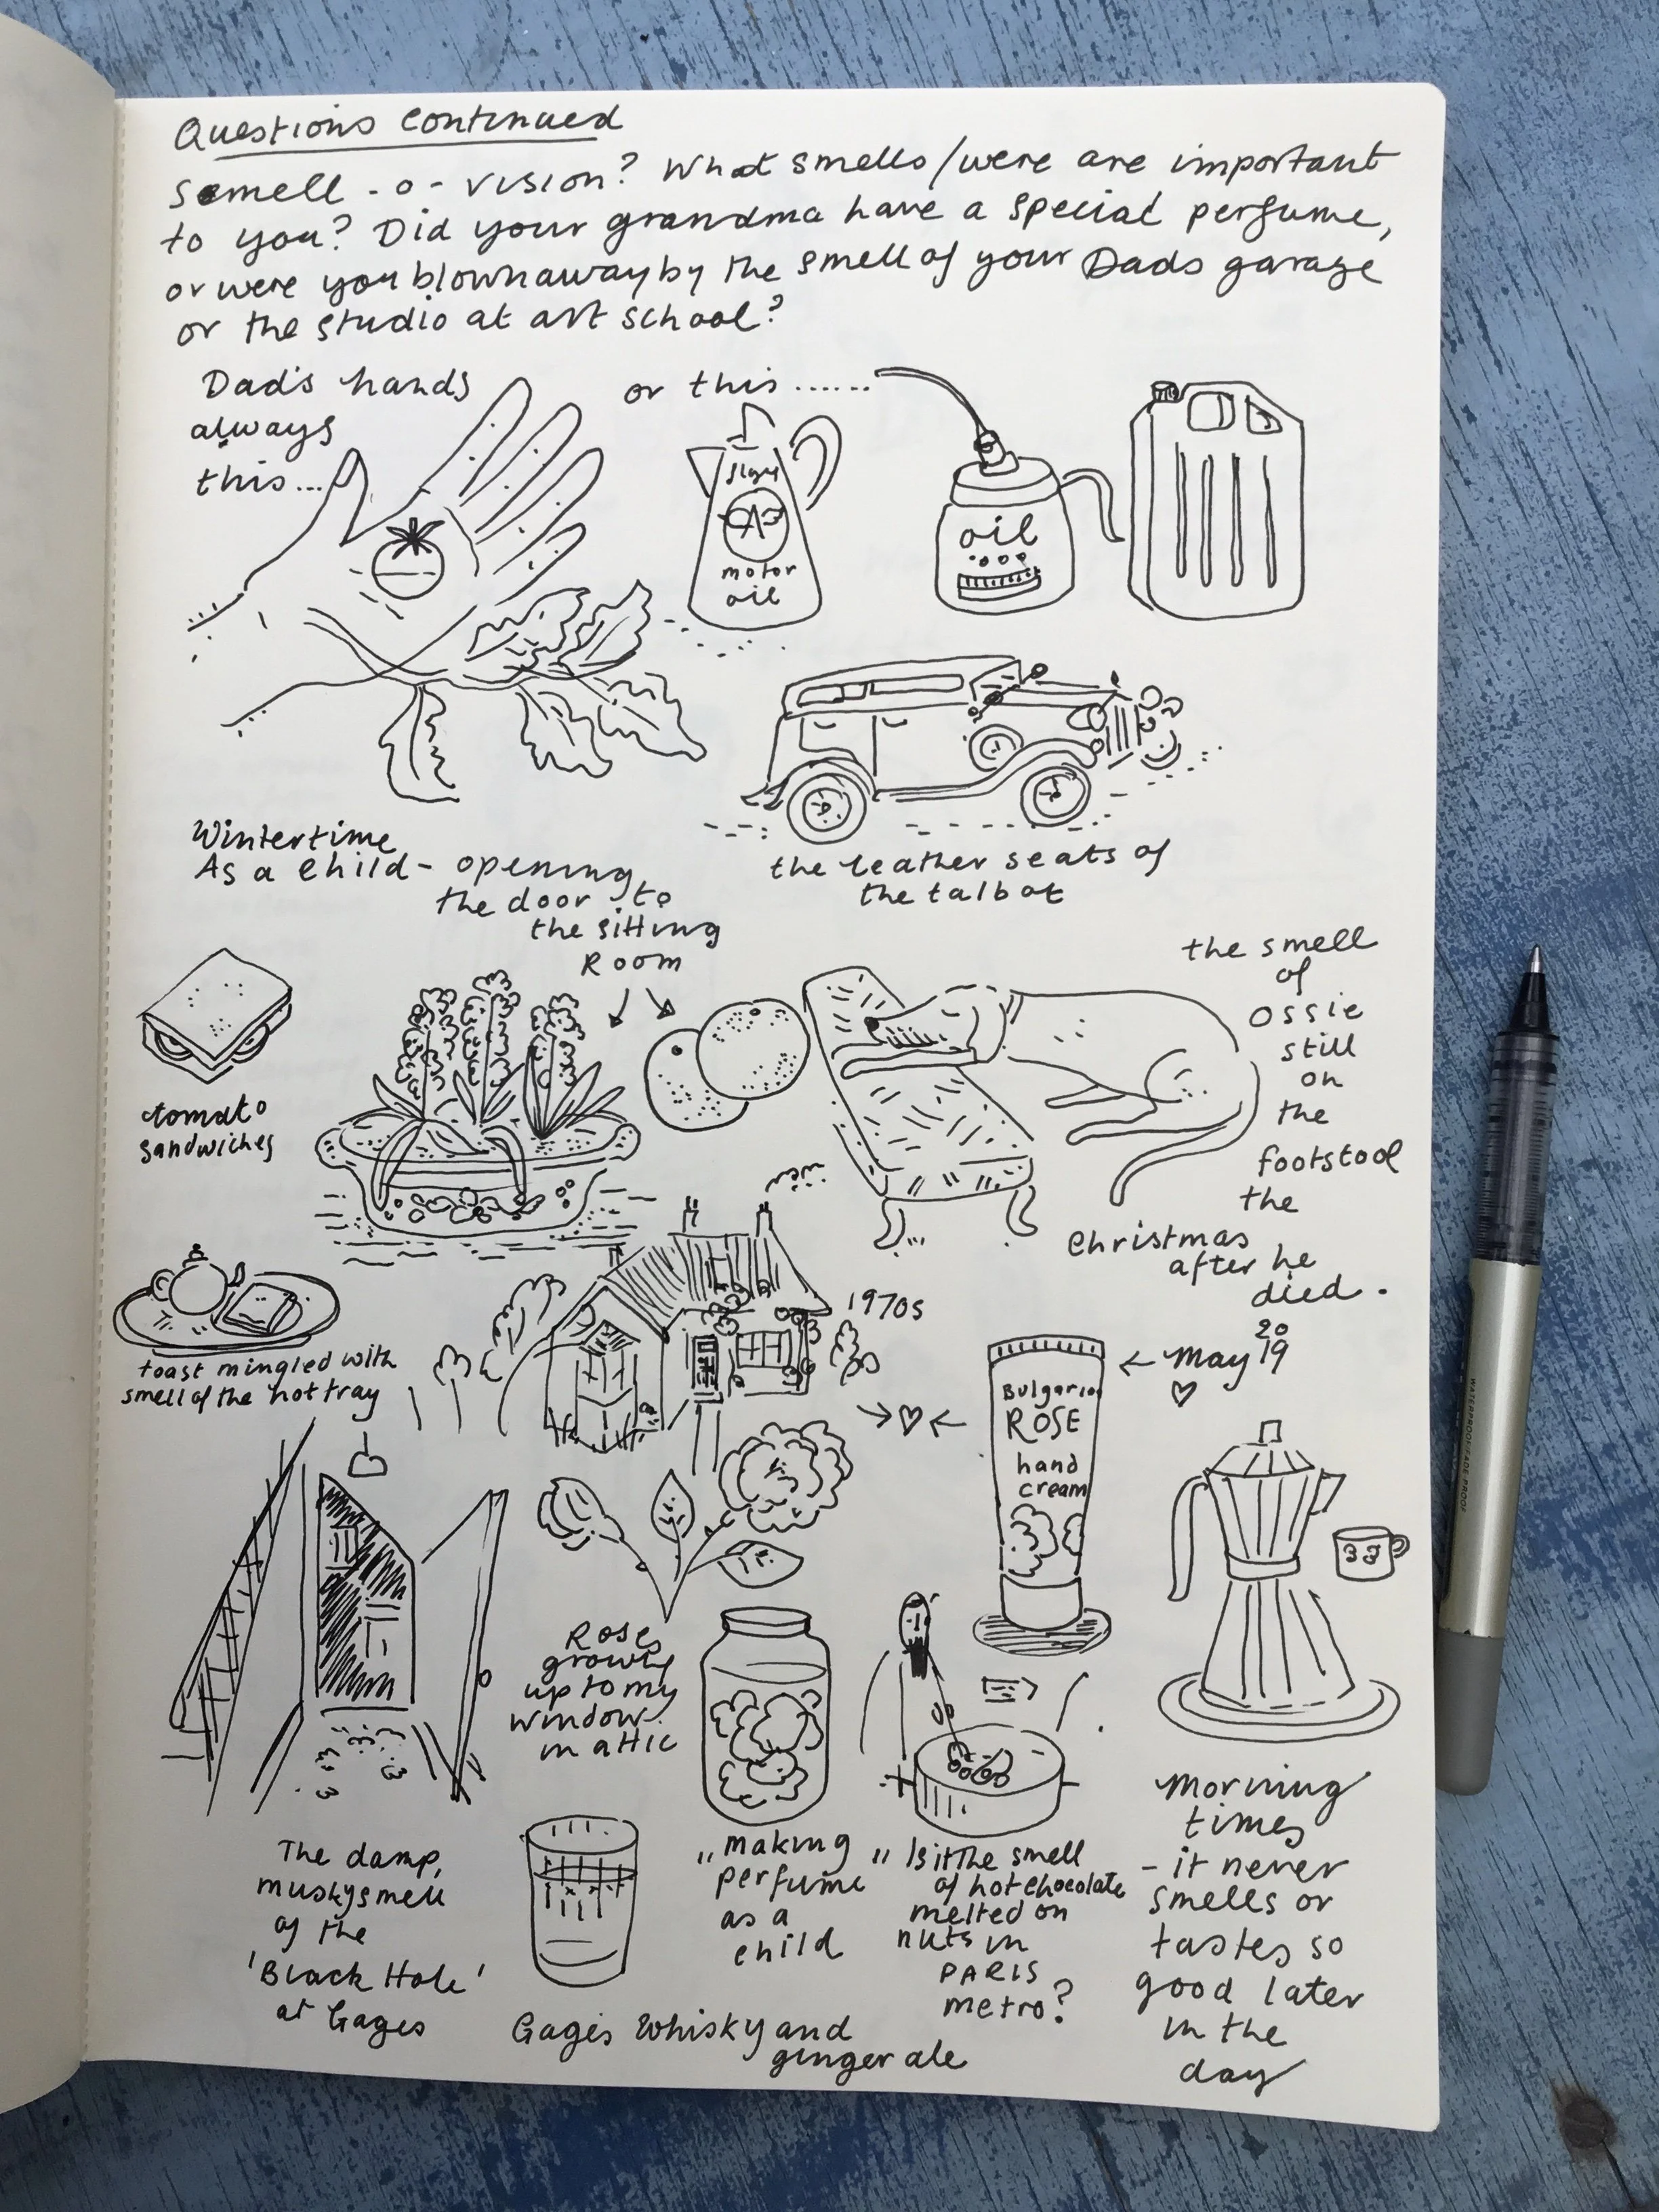 Questions continued
Smell - o - vision? What smells/were are important
to you? Did your grandma have a special perfume,
or were you blown away by the smell of your Dads garage
or the studio at art school?
Dad's hands
always
this...
or this ......
motor
oil
oil
the leather seats of
the talbot
Wintertime
As a child - opening
the door to
the sitting
Room
tomato
sandwiches
the smell
of
ossie
still
on
the
footstool
the
christmas
after he
died.
toast mingled with
smell of the hot tray
1970s
Bulgarian
ROSE
hand
cream
← May 2019
Roses
growing
up to my
window.
in attic
The damp,
musky smell
of the
'Black Hole'
at Gages
Gages Whisky and
ginger ale
"making
perfume"
as a
child
Is it the smell
of hot chocolate
melted on
nuts in
PARIS
metro?
Morning
times
- it never
smells or
tastes so
good later
in the
day
WATERPROOF · FADE PROOF